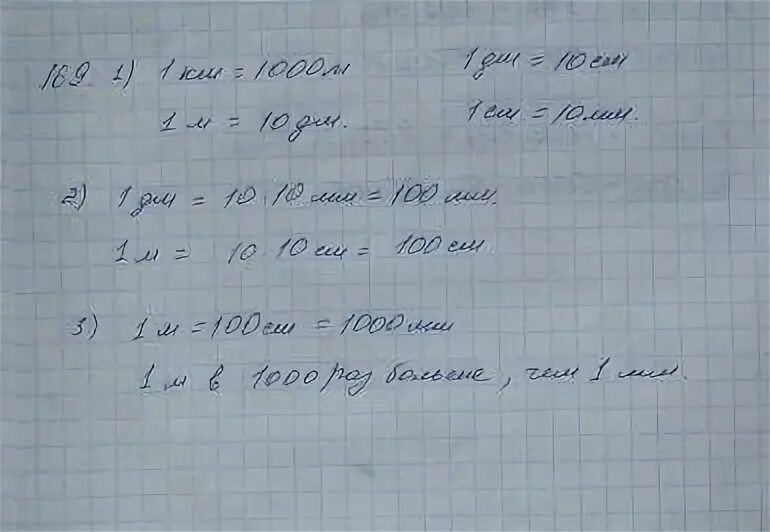 169 1) 1 км = 1000 м 1 дм = 10 см
1 м = 10 дм. 1 см = 10 мм.
2) 1 дм = 10 · 10 мм = 100 мм.
1 м = 10 · 10 см = 100 см.
3) 1 м = 100 см = 1000 мм
1 м в 1000 раз больше, чем 1 мм.